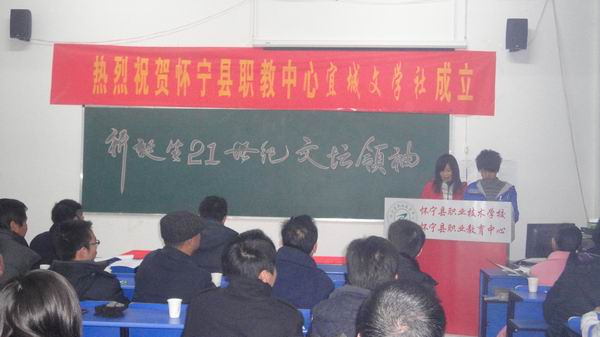 热烈祝贺怀宁县职教中心宜城文学社成立
祈诞生21世纪文坛领袖
怀宁县职业技术学校
怀宁县职业教育中心